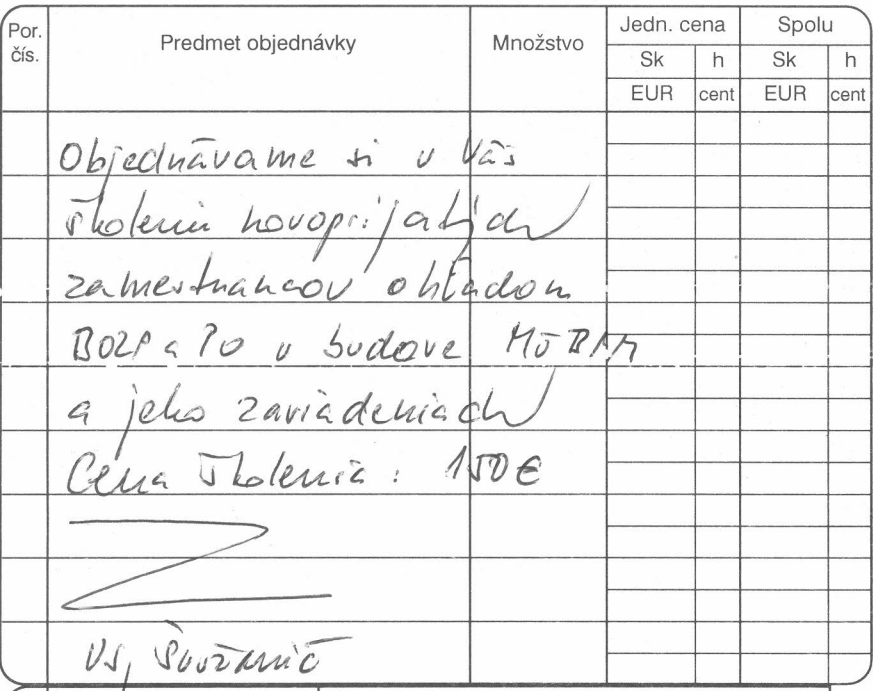 Por. čís.
Predmet objednávky
Množstvo
Jedn. cena
Spolu
Sk h Sk h
EUR cent EUR cent
Objednávame si u Vás
školenie novoprijatých
zamestnancov ohľadom
BOZP a PO v budove MÚ BAM
a jeho zariadeniach
Cena školenia : 150 €
VS,